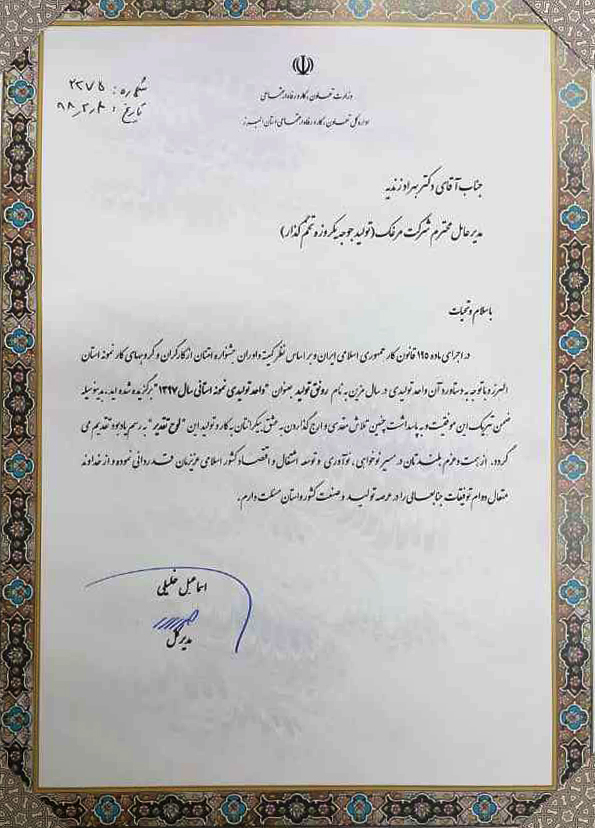 شماره: ۲۲۷۵
تاریخ: ۹۸٫۲٫۸
وزارت تعاون، کار و رفاه اجتماعی
اداره کل تعاون، کار و رفاه اجتماعی استان البرز
جناب آقای دکتر بهراد زندیه
مدیرعامل محترم شرکت مرغک (تولید جوجه یکروزه تخم گذار)
باسلام و تحیات
در اجرای ماده ۱۹۵ قانون کار جمهوری اسلامی ایران و بر اساس نظر کمیته داوران جشنواره امتنان از کارگران و گروههای کار نمونه استان
البرز و با توجه به دستاورد آن واحد تولیدی در سال مزین به نام رونق تولید بعنوان "واحد تولیدی نمونه استانی سال ۱۳۹۷" برگزیده شده اید. بدینوسیله
ضمن تبریک این موفقیت و به پاسداشت چنین تلاش مقدسی و ارج گذاردن به عشق بیکرانتان به کار و تولید این "لوح تقدیر" به رسم یادبود تقدیم می
گردد. از همت و عزم بلندتان در مسیر نوخواهی، نوآوری و توسعه اشتغال و اقتصاد کشور اسلامی عزیزمان قدردانی نموده و از خداوند
متعال دوام توفیقات جنابعالی را در عرصه تولید و صنعت کشور و استان مسئلت دارم.
اسماعیل خلیلی
مدیرکل